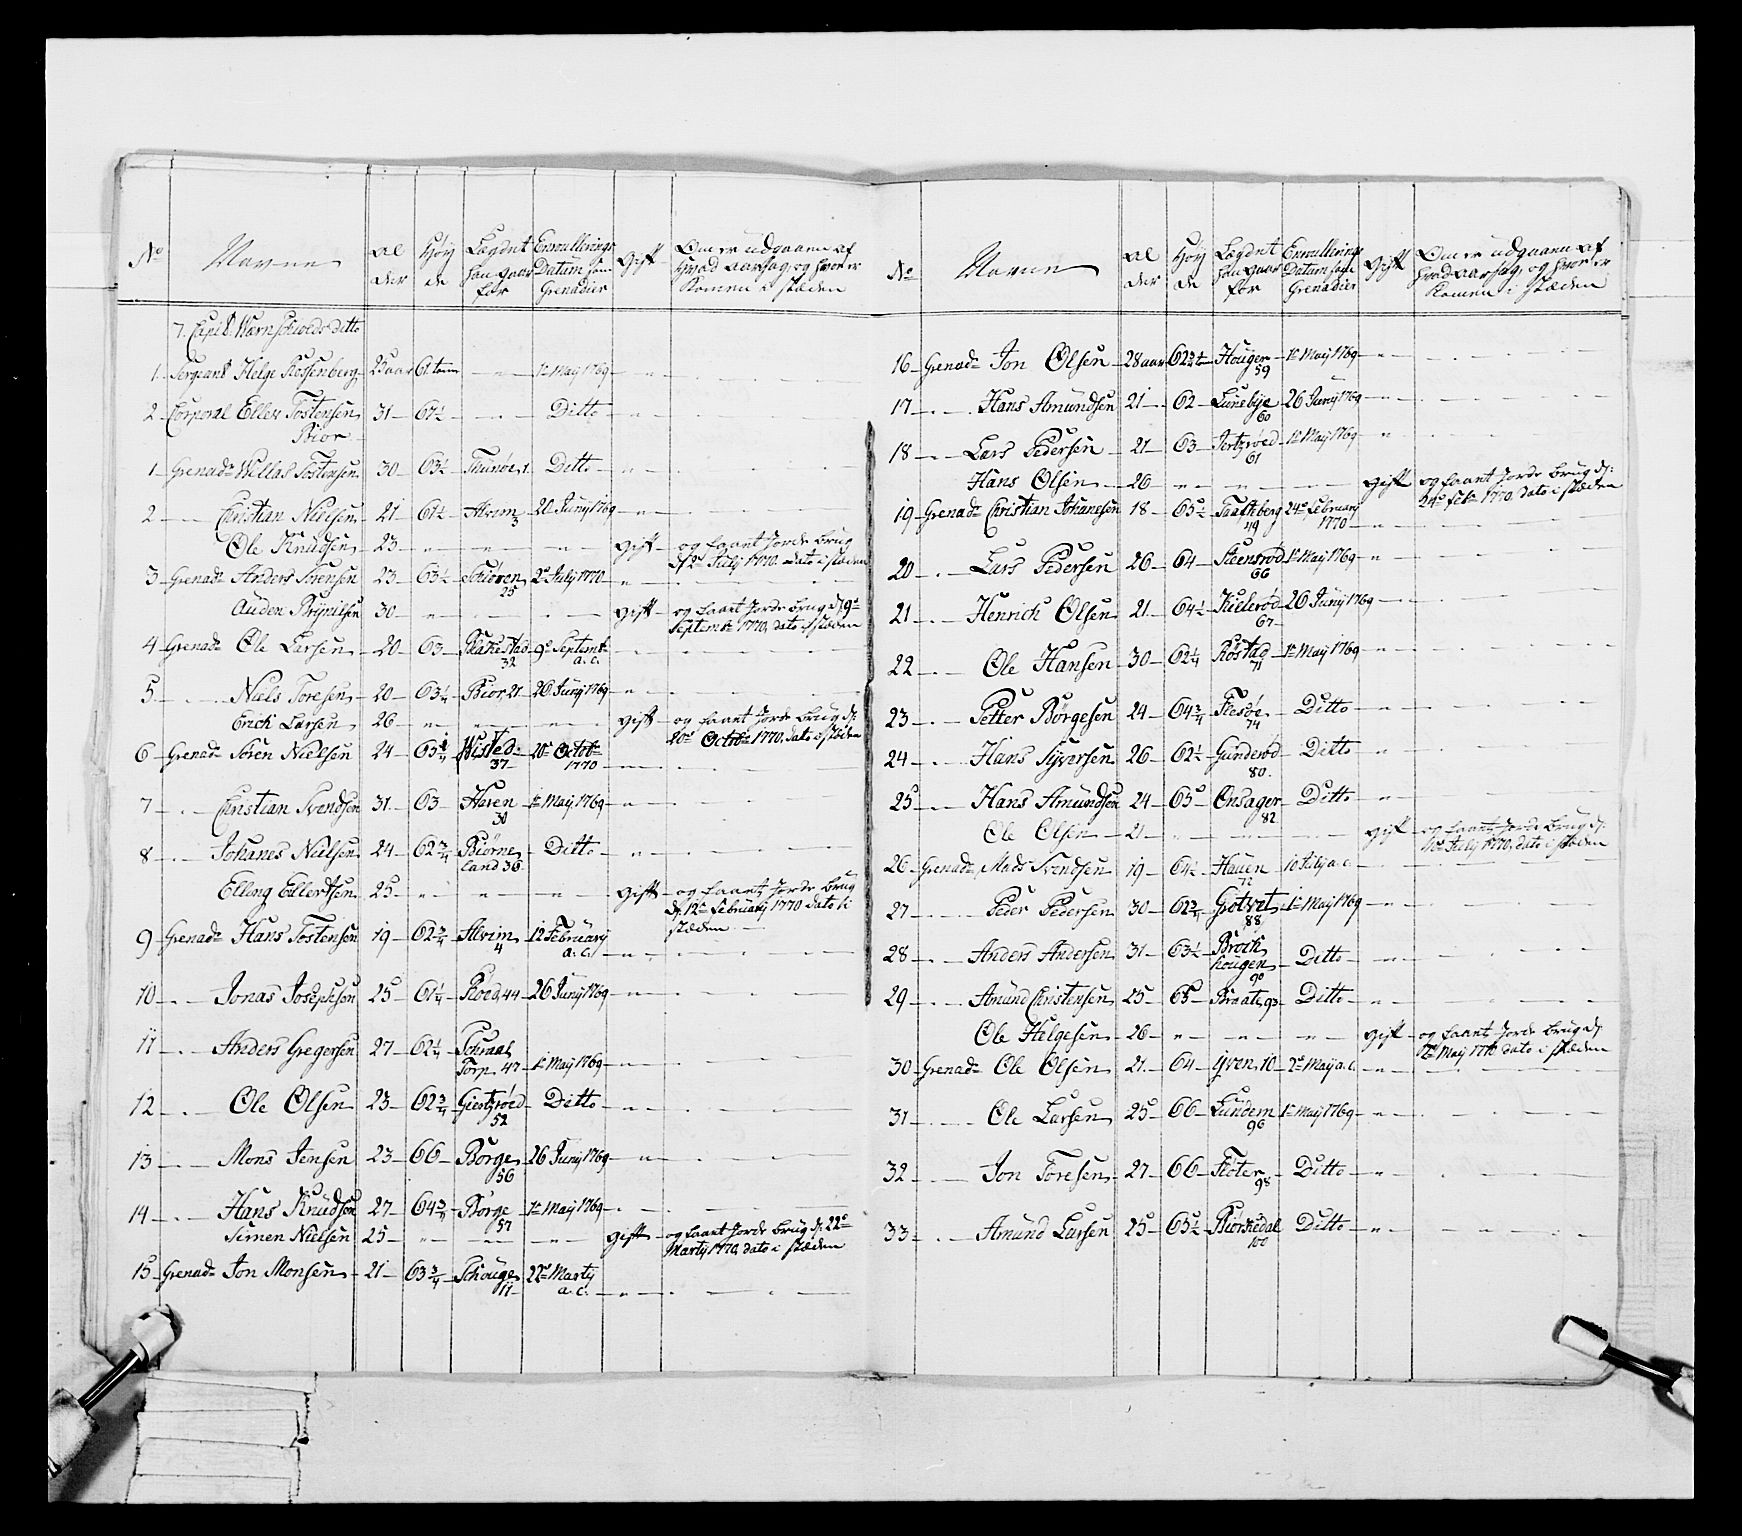 No Navne Al der Høy de Lægdet han gaar for Enroullerings Datum som Grenadier Gift Om er udgaaen af hvad aarsag, og hvor er kommen i stæden
7. Capit. Warnschiolds ditto
1 Sergeant Helge Rossenberg 25 aar 61 tom — 1e Maÿ 1769
2 Corporal Eller Tostensen 31 67½ — Ditto
Bior
1 Grenadr Nillas Tostensen 30 63½ Thunøe 1. Ditto
2 Christian Nielsen 21 61½ Alvim 3 20 Junÿ 1769
Ole Knudsen 23 Gift og faaet Jorde brug
d: 2e Julÿ 1770. dato i stæden
3 Grenadr Anders Svensen 23 63½ Schiøren 25 2e Julÿ 1770
Auden Brÿnilsen 30 Gift og faaet Jorde brug d: 9e
Septembr 1770, dato i stæden
4 Grenadr Ole Larsen 20 63 Blakestad 32 9e Septembr a.c.
5 Niels Toresen 20 63¼ Bior 21. 26 Junÿ 1769
Erich Larsen 26 Gift og faaet Jorde brug d:
20e Octobr 1770. dato i stæden
6 Grenadr Søren Nielsen 24 65¼ Wisted 37 20e Octobr 1770
7 Christian Svendsen 31 63 Haren 30 1e Maÿ 1769
8 Johanes Nielsen 24 62¾ Biørne land 36 Ditto
Elling Ellertsen 25 Gift og faaet Jorde brug
d: 12e Februarÿ 1770 dato i
stæden
9 Grenadr Hans Tostensen 19 62¾ Alvim 4 12 Februarÿ a.c.
10 Jonas Josephsen 25 61¼ Roed 44 26 Junÿ 1769
11 Anders Gregersen 27 62¼ Schraae Torp 47 1e Maÿ 1769
12 Ole Olsen 23 62¾ Giertzrøed 52 Ditto
13 Mons Jensen 23 66 Borge 56 26 Junÿ 1769
14 Hans Knudsen 27 64¾ Børge 57 1e Maÿ 1769
Simen Nielsen 25 Gift og faaet Jorde brug d: 22e
Martÿ 1770, dato i stæden
15 Grenadr Jon Monsen 21 63¾ Schouge 11 22e Martÿ a.c.
No Navne Al der Høy de Lægdet han gaar for Enroullerings Datum som Grenadier Gift Om er udgaaen af hvad aarsag, og hvor er kommen i stæden
16 Grenadr Jon Olsen 28 aar 62¾ t Houger 59 1e Maÿ 1769
17 Hans Amundsen 21 62 Lunebÿe 60 26 Junÿ 1769
18 Lars Pedersen 21 63 Jortzrøed 61 1e Maÿ 1769
Hans Olsen 26 Gift og faaet Jorde brug d:
24e Febr 1770. dato i stæden
19 Grenadr Christian Johanesen 18 65½ Taaskberg 49 24e Februarÿ 1770
20 Lars Pedersen 26 64 Steensrød 66 1e Maÿ 1769
21 Henrich Olsen 21 64½ Kielerød 67 26 Junÿ 1769
22 Ole Hansen 30 62¼ Røstad 71 1e Maÿ 1769
23 Petter Børgesen 24 64¾ Flesøe 74 Ditto
24 Hans Syversen 26 62½ Gunderød 80. Ditto
25 Hans Amundsen 24 65 Onsager 82 Ditto
Ole Olsen 21 Gift og faaet Jorde brug d:
10e Julÿ 1770, dato i stæden
26 Grenadr Mads Svendsen 19 64½ Hauen 72 10 Julÿ a.c.
27 Peder Pedersen 30 62¾ Grotvet 88 1e Maÿ 1769
28 Anders Andersen 31 63½ Broik hougen 90 Ditto
29 Amund Christensen 25 65 Braate 93 Ditto
Ole Helgesen 26 Gift og faaet Jorde brug d:
2e Maÿ 1770 dato i stæden
30 Grenadr Ole Olsen 21 64 Qven 10 2e Maÿ a.c.
31 Ole Larsen 25 66 Lundem 96 1e Maÿ 1769
32 Jon Toresen 27 66 Floter 98 Ditto
33 Amund Larsen 25 65½ Biørkedal 100 Ditto